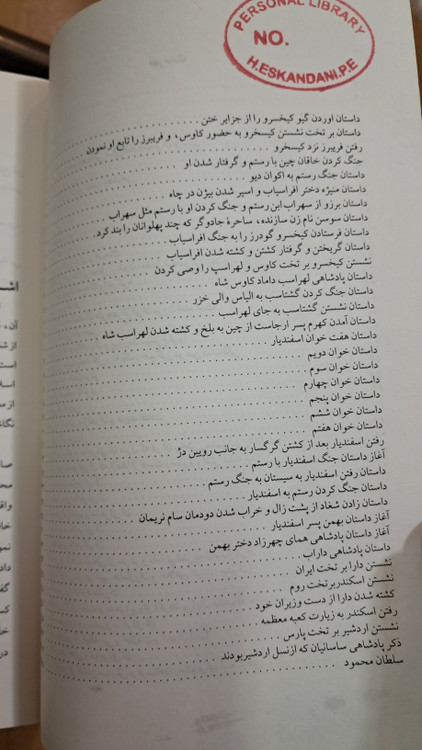 PERSONAL LIBRARY
NO.
H.ESKANDANI.P.E
داستان اوردن گیو کیخسرو را از جزایر ختن
داستان بر تخت نشستن کیسخرو به حضور کاوس، و فریبرز را تابع او نمودن
رفتن فریبرز نزد کیخسرو
جنگ کردن خاقان چین با رستم و گرفتار شدن او
داستان جنگ رستم به اکوان دیو
داستان منیژه دختر افراسیاب و اسیر شدن بیژن در چاه
داستان برزو از سهراب ابن رستم و جنگ کردن او با رستم مثل سهراب
داستان سوسن نام زن سازنده، ساحرهٔ جادوگر که چند پهلوانان را بند کرد.
داستان فرستادن کیخسرو گودرز را به جنگ افراسیاب
داستان گریختن و گرفتار کشتن و کشته شدن افراسیاب
نشستن کیخسرو بر تخت کاوس و لهراسپ را وصی کردن
داستان پادشاهی لهراسب داماد کاوس شاه
داستان جنگ کردن گشتاسب به الیاس والی خزر
داستان نشستن گشتاسب به جای لهراسب
داستان آمدن کهرم پسر ارجاست از چین به بلخ و کشته شدن لهراسب شاه
داستان هفت خوان اسفندیار
داستان خوان دویم
داستان خوان سوم
داستان خوان چهارم
داستان خوان پنجم
داستان خوان ششم
داستان خوان هفتم
رفتن اسفندیار بعد از کشتن گرگسار به جانب رویین دژ
آغاز داستان جنگ اسفندیار با رستم
داستان رفتن اسفندیار به سیستان به جنگ رستم
داستان جنگ کردن رستم به اسفندیار
داستان زادن شغاد از پشت زال و خراب شدن دودمان سام نریمان
آغاز داستان بهمن پسر اسفندیار
آغاز داستان پادشاهی همای چهرزاد دختر بهمن
داستان پادشاهی داراب
نشستن دارا بر تخت ایران
نشستن اسکندربرتخت روم
کشته شدن دارا از دست وزیران خود
رفتن اسکندر به زیارت کعبه معظمه
نشستن اردشیر بر تخت پارس
ذکر پادشاهی ساسانیان که ازنسل اردشیربودند
سلطان محمود